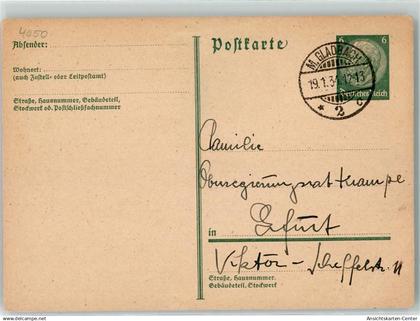 4050
Absender:
Wohnort:
(auch Zustell- oder Leitpostamt)
Straße, Hausnummer, Gebäudeteil,
Stockwerk od. Postschließfachnummer
Postkarte
6 6
Deutsches Reich
M.GLADBACH
19.1.34.12-13
* 2 c
Familie
Oberregierungsrat Krampe
in Erfurt
Viktor-Scheffelstr. 11
Straße, Hausnummer,
Gebäudeteil, Stockwerk
Ansichtskarten-Center